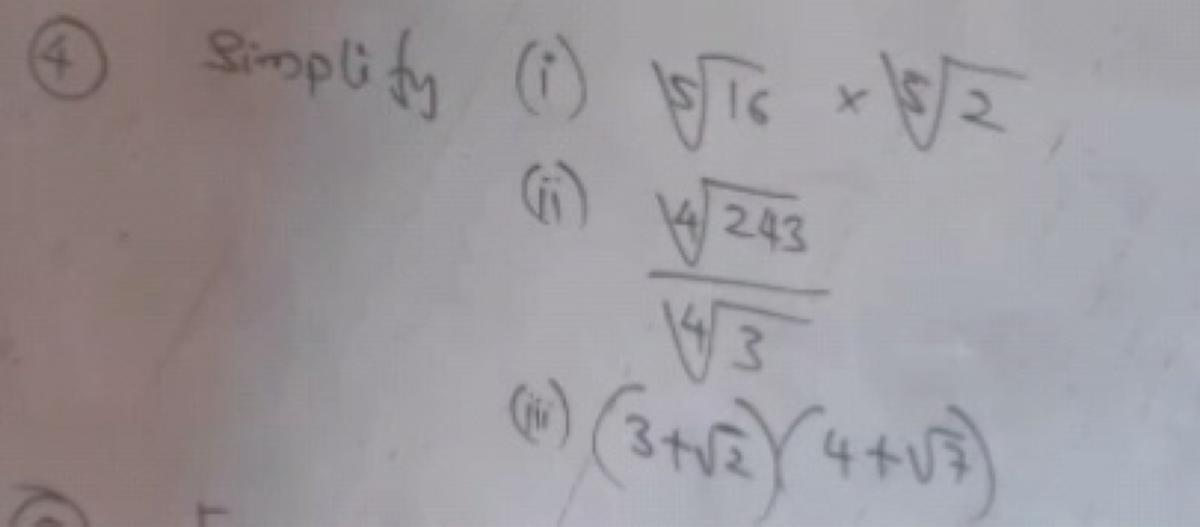 ④ Simplify (i) ⁵√16 × ⁵√2
(ii) ⁴√243 / ⁴√3
(iii) (3+√2)(4+√7)